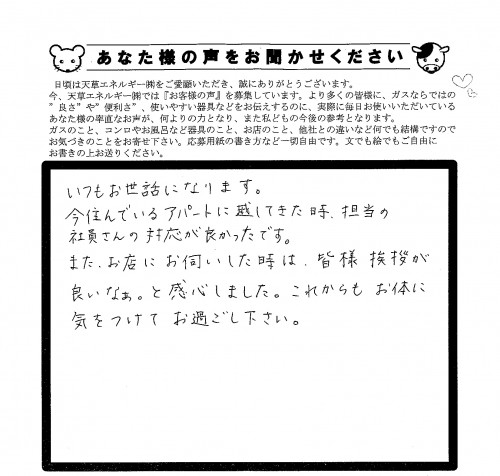 あなた様の声をお聞かせください
日頃は天草エネルギー㈱をご愛顧いただき、誠にありがとうございます。
今、天草エネルギー㈱では『お客様の声』を募集しています。より多くの皆様に、ガスならではの
”良さ”や”便利さ”、使いやすい器具などをお伝えするのに、実際に毎日お使いいただいている
あなた様の率直なお声が、何よりの力となり、また私どもの今後の参考となります。
ガスのこと、コンロやお風呂など器具のこと、お店のこと、他社との違いなど何でも結構ですので
お気づきのことをお寄せ下さい。応募用紙の書き方など一切自由です。文でも絵でもご自由に
お書きの上お送りください。
いつもお世話になります。
今住んでいるアパートに越してきた時、担当の
社員さんの対応が良かったです。
また、お店にお伺いした時は、皆様挨拶が
良いなぁ。と感心しました。これからもお体に
気をつけてお過ごし下さい。